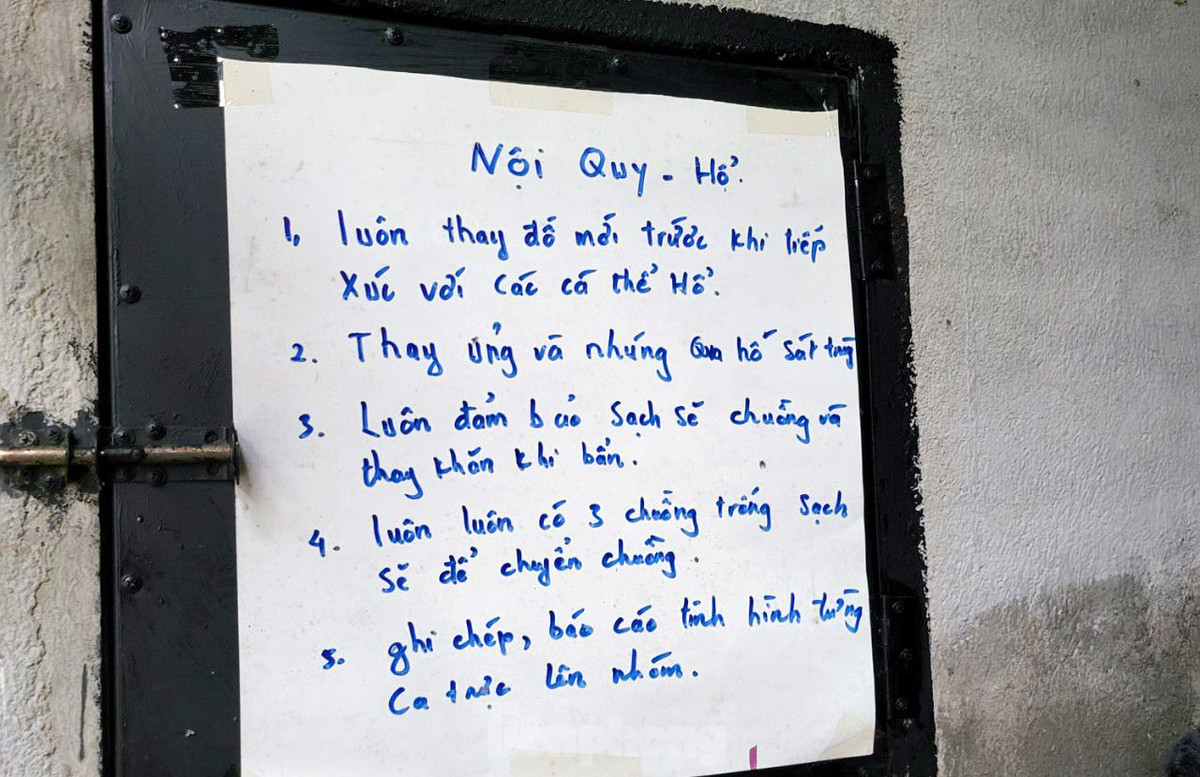 Nội Quy - Hổ.
1, luôn thay đồ mới trước khi tiếp
Xúc với các cá thể Hổ.
2. Thay ủng và nhúng Qua hố sát trùng
3. Luôn đảm bảo sạch sẽ chuồng và
thay khăn khi bẩn.
4. luôn luôn có 3 chuồng trống sạch
sẽ để chuyển chuồng.
5. ghi chép, báo cáo tình hình từng
Ca trực lên nhóm.